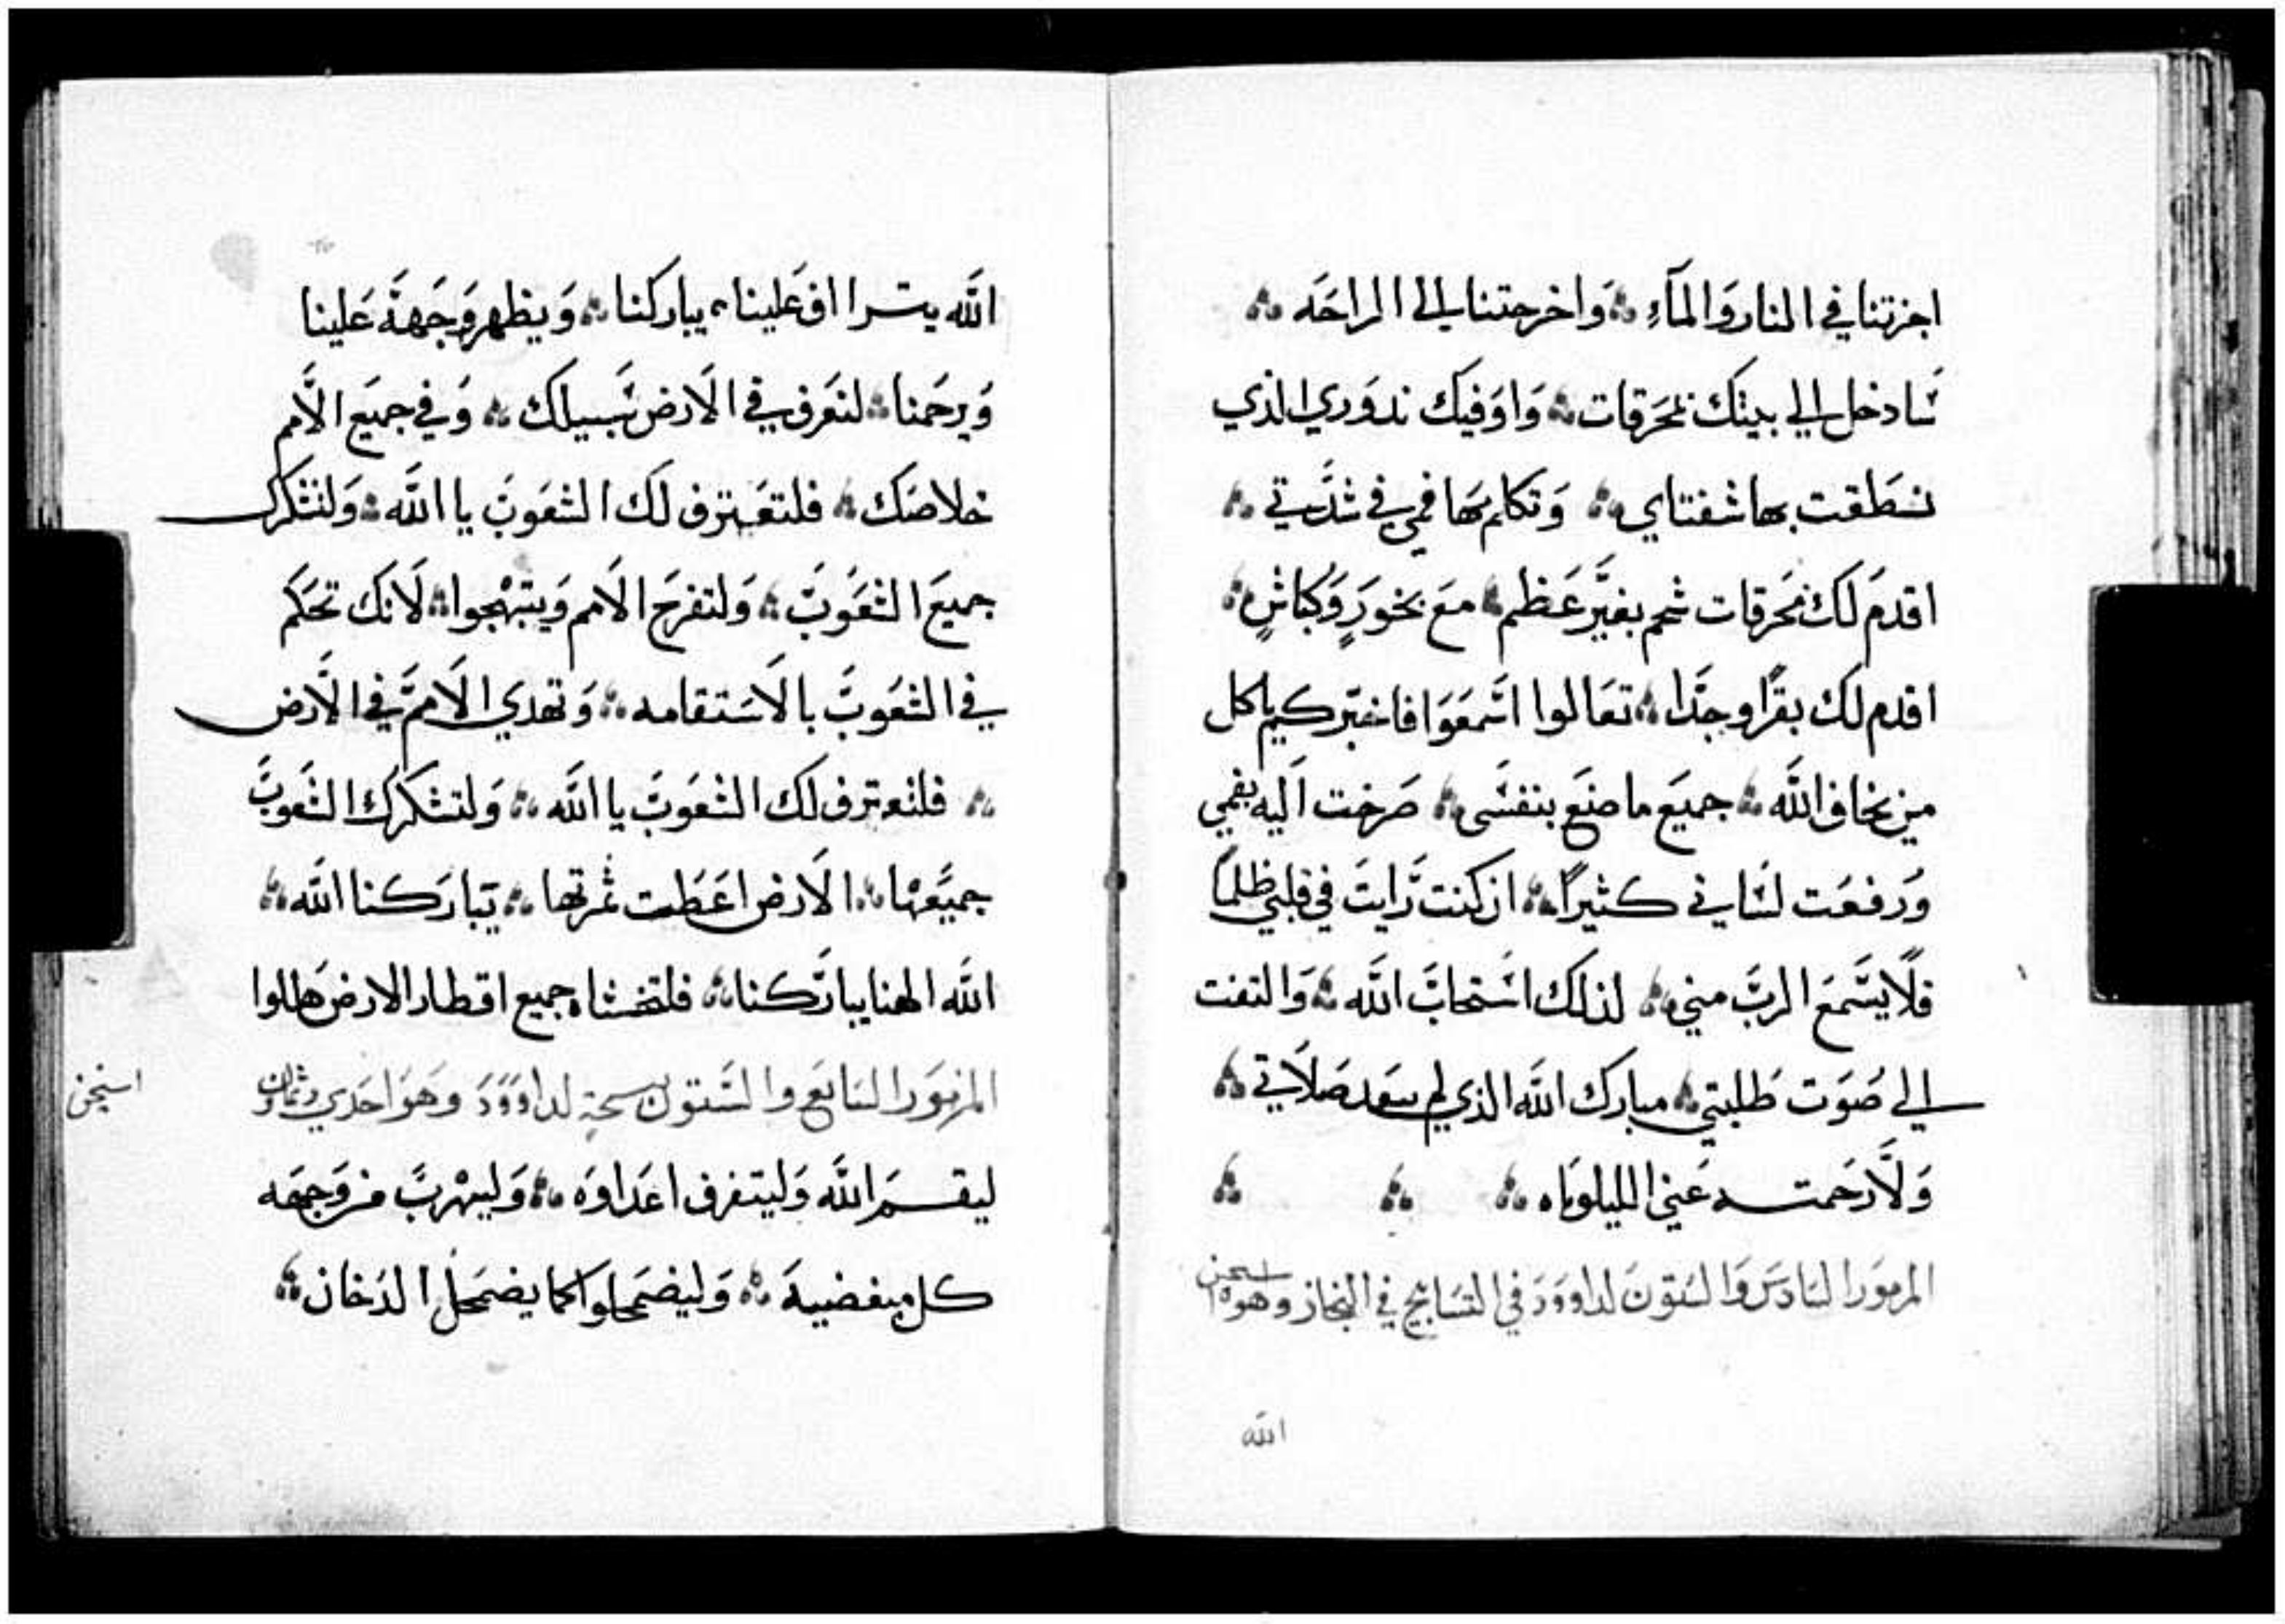 اجزتنا في النار وَالمآءِ ؞ وَاخرجتنا الي الراحَه ؞
سَادخل الي بيتك بمحَرقات ؞ وَاوَفيك ندوَري الذي
نطَقت بها شفتاي ؞ وَتكلم بها فمي في شدَّتي ؞
اقدمَ لك محَرقات شحم بغيَّر عَظم ؞ معَ بخورٍ وَكباشٍ ؞
اقدم لك بقرًا وجدًا ؞ تعَالوا اسَمعَوَا فاخبَركم ياكل
من يخاف الله ؞ جميَع ما صنَع بنفسَى ؞ صَرخت اليه بفمي
وَرفعَت لسَاني كثيرًا ؞ ان كنت رَايتَ في قلبي ظلمًا
فلَا يسَمعَ الربَّ مني ؞ لذلك اسَتجابَ الله ؞ وَالتفت
الي صَوَت طَلبتي ؞ مبارك الله الذي لم يبعَد صَلَاتي ؞
وَلَا رَحمتــه عَني الليلوياه ؞ ؞ ؞
المزموَر السَادسَ وَالسَتوَن لداووَدَ في التسَابيح في
وهو
الله
الله يتــرااف عَلينا ؞ يباركنا ؞ وَيظهر وَجَههَ عَلينا
وَيرحَمنا ؞ لنعَرف في الاَرض سَبيلك ؞ وَفي جميَع الاَمم
خلاصَك ؞ فلتعَترف لَك الشعَوبَ يا الله ؞ وَلتشكرك
جميَع الشعَوَبَ ؞ وَلتفرَح الاَمم وَيبتهجوا ؞ لَانك تحَكم
في الشعَوَبَ بالاَسَتقامه ؞ وَتهدي الاَممَ في الاَرض
؞ فلتعترف لك الشعَوَبَ يا الله ؞ وَلتشكرك الشعَوبَ
جميَعَها ؞ الاَرض اعَطَت ثمرتها ؞ تبارَكنا الله ؞
الله الهنا يبارَكنا ؞ فلتخشاه جميع اقطار الارض هَللوا
المزموَر السَابَع والسَتون تسبحة لداووَدَ وهَوَ احَدي وثمانون
ليقــمَ الله وَليتفرق اعَداوَه ؞ وَليهربَ من وَجهَه
كل مبغضييهَ ؞ وَليضمَحلوا كما يضمَحل الدَخان ؞